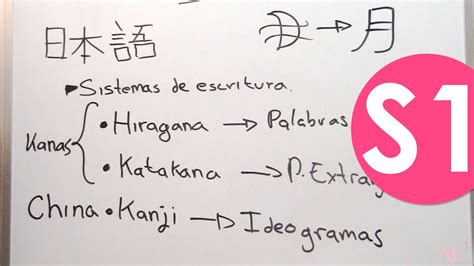 日本語 → 月
Sistemas de escritura.
Kanas
• Hiragana → Palabras
• Katakana → P. Extra
China • Kanji → Ideogramas
S1